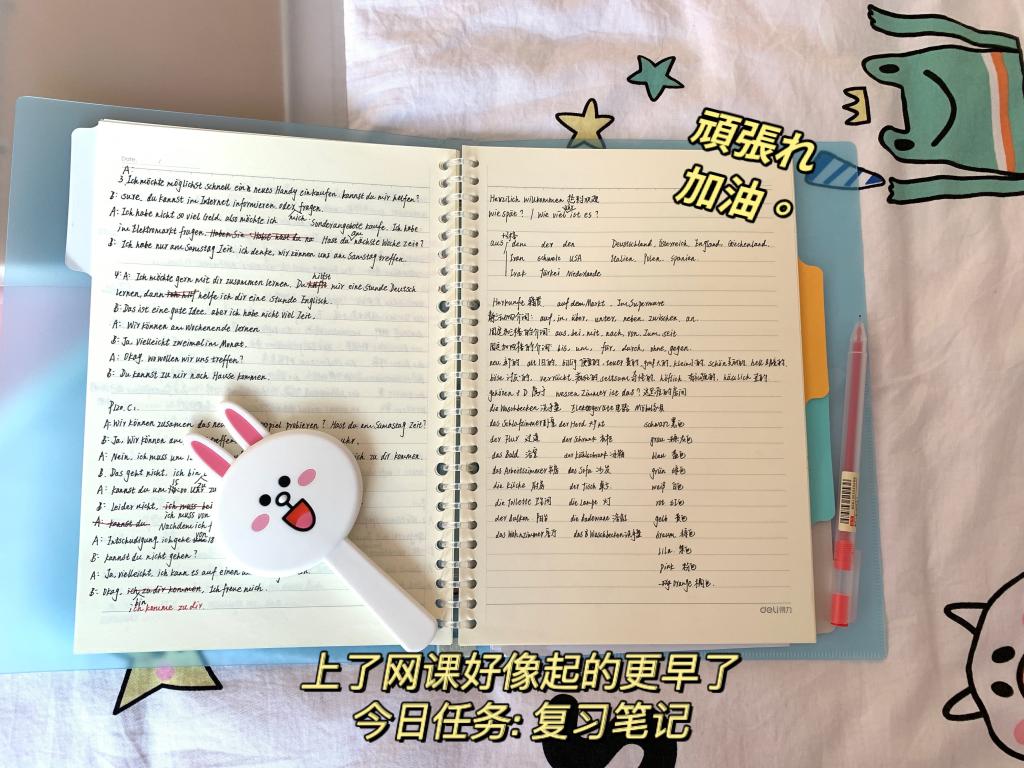 頑張れ
加油。
Date.
A:
3. Ich möchte möglichst schnell ein neues Handy einkaufen. kannst du mir helfen?
B: Sure. du kannst im Internet informieren. oder fragen.
A: Ich habe nicht so viel Geld. also möchte ich mich Sonderangebote kaufe. Ich habe
im Elektromarkt fragen. Hast du an nächste Woche Zeit?
B: Ich habe nur am Samstag Zeit. ich denke, wir können uns am Samstag treffen.
4. A: Ich möchte gern mit dir zusammen lernen. Du hilfst mir eine Stunde Deutsch
lernen, dann helfe ich dir eine Stunde Englisch.
B: Das ist eine gute Idee. aber ich habe nicht viel Zeit.
A: Wir können am Wochenende lernen
B: Ja. Vielleicht zweimal im Monat.
A: Okay. wo wollen wir uns treffen?
B: Du kannst zu mir nach Hause kommen.
A: Wir können zusammen das neue probieren? Hast du am Samstag Zeit?
B: Ja, Wir können am
A: Nein, ich muss um zu dir kommen.
B. Das geht nicht. ich bin
A: kannst du um
B: Leider nicht. ich muss
ich muss von
A: kannst du Nachdem ich
A: Entschuldigung. ich gehe
B: kannst du nicht gehen?
A: Ja, vielleicht. ich kann es auf einen
B: Okay. ich zu dir kommen, Ich freue mich.
bin
ich komme zu dir
Harzilich willkommen 热烈欢迎
wie späe? / wie viel Uhr ist es?
aus dem der den Deustschland. Österreich. England. Griechenland.
Iran schweiz USA Italien. Polen. Spanien.
Irak Türkei Niederlande
Harkunfe 籍贯 auf dem Markt. Im Supermare
静三动四介词: auf. in. über. unter. neben. zwischen. an.
固定加三格的介词: aus. bei. mit. nach. von. zum. seit
固定加四格的介词: bis, um, für, durch, ohne, gegen.
neu 新的. alt 旧的. billig 便宜的. teuer 贵的. groß 大的. klein 小的. schön 美丽的.
böse 讨厌的. verrückt 疯狂的. seltsam 奇怪的. höflich 有礼貌的. hässlich 丑的
gehören + D 属于 wessen Zimmer ist das? 这是谁的房间
die Waschbecken 洗手盆 Elektogeräte 电器 Möbel 家具
das Schlafzimmer 卧室 der Herd 灶台 schwarz 黑色
der Flur 过道 der Schrank 柜子 grau 灰色
das Bald 浴室 der Kühlschrank 冰箱 blau 蓝色
das Arbeitszimmer 书房 das Sofa 沙发 grün 绿色
die Küche 厨房 der Tisch 桌子 weiß 白色
die Toilette 卫生间 die Lampe 灯 rot 红色
der Balkon 阳台 die Badewanne 浴缸 gelb 黄色
das Wohnzimmer 客厅 das Waschbecken 洗手盆 braun 棕色
lila 紫色
pink 粉色
orange 橘色
deli得力
上了网课好像起的更早了
今日任务: 复习笔记